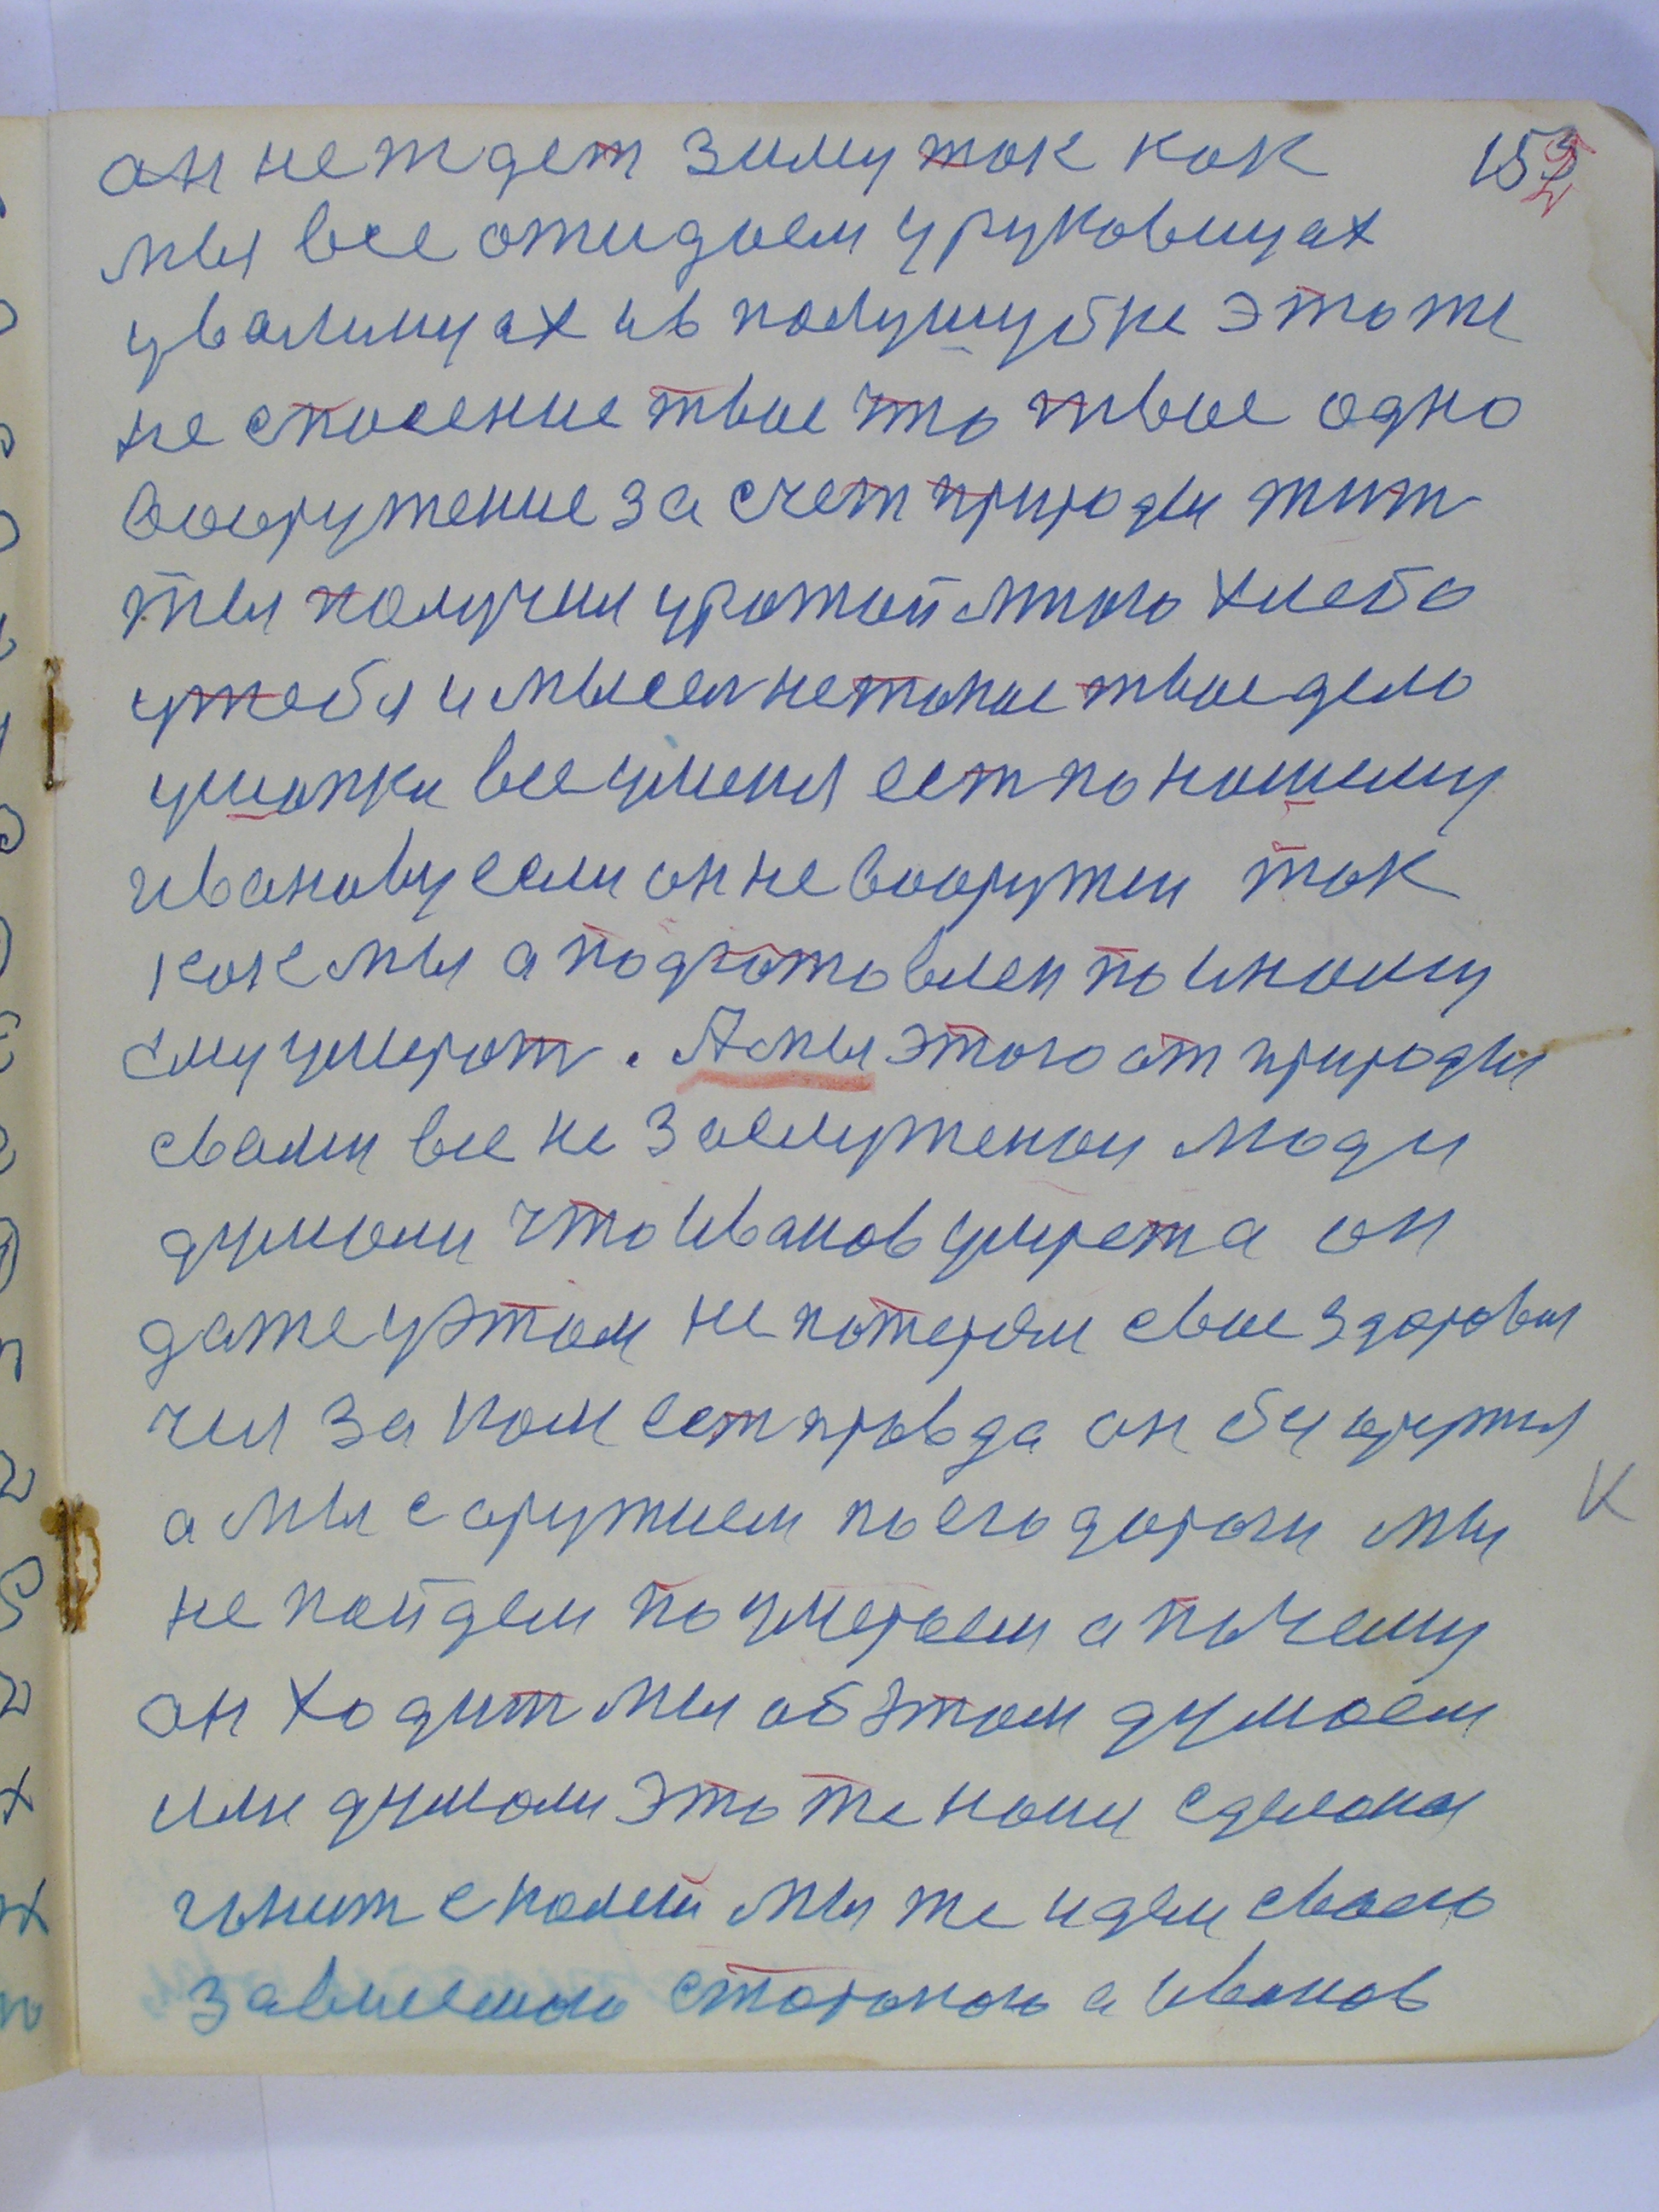 он не ждет зиму так как 152
мы все ожидаем у руковицах
увалинцах и в полушубке это же
не спасение твое что твое одно
вооружение за счет природы жит
ты получил урожай много хлеба
у тебя и мысел не такое твое дело
ушапки все уменя ест по нашему
иванову если он не вооружен так
как мы а подготовлен по иному
ему умерат. А мы этого от природы
свами все не заслужили люди
думали что Иванов умрет а он
даже у этом не потерял свае здоровия
чия за ком ест правда он без оружия
а мы с оружием по его дороги мы
не пойдем по умераем а почему
он ходит мы об этом думаем
или думали это же нами сделана
гонит с колеи мы же идем сваею
зависемою стороною а Иванов
К